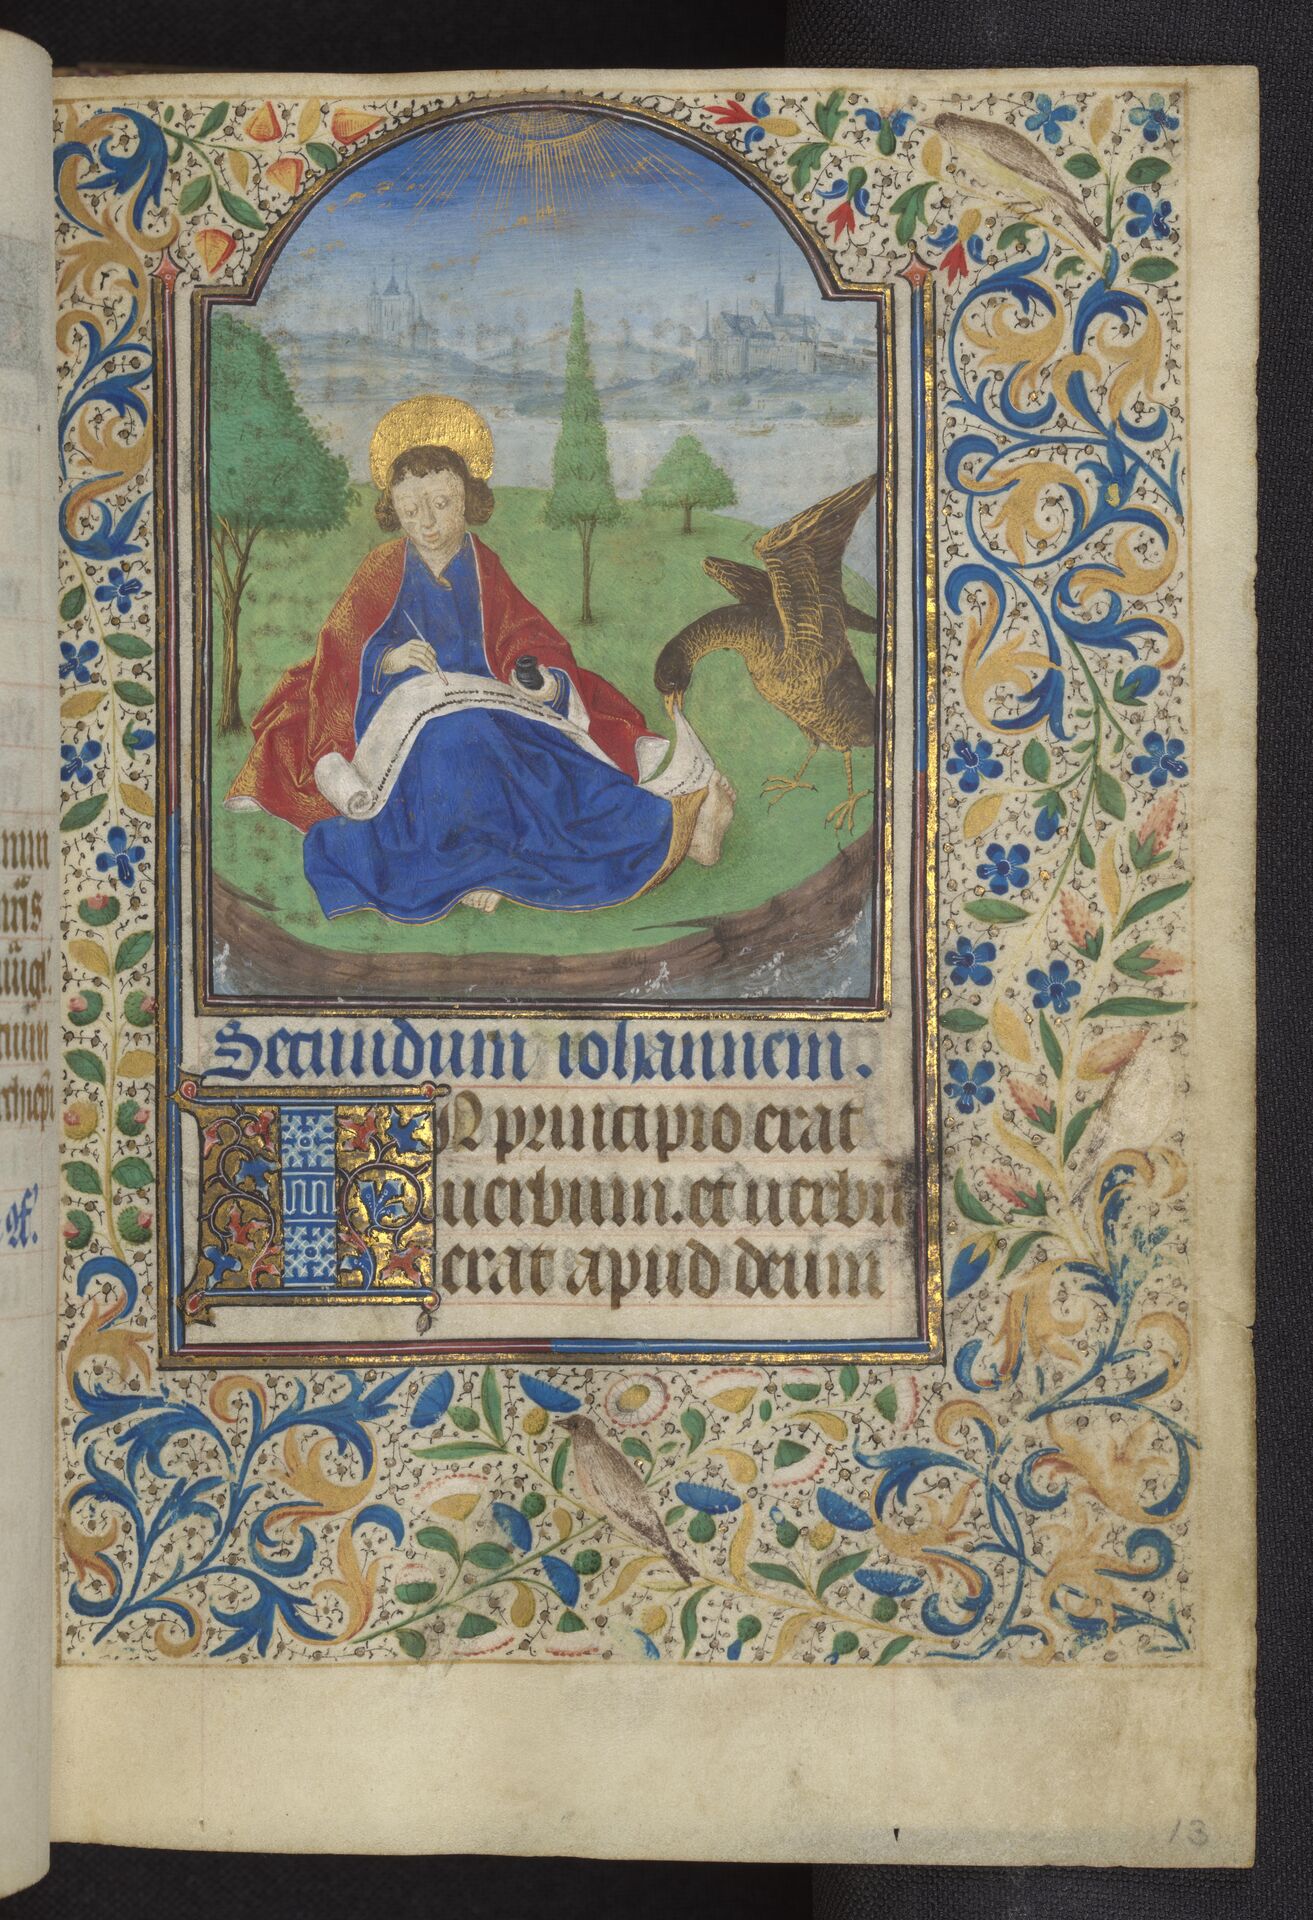 Secundum iohannem.
IN principio erat
uerbum. et uerbū
erat apud deum
13